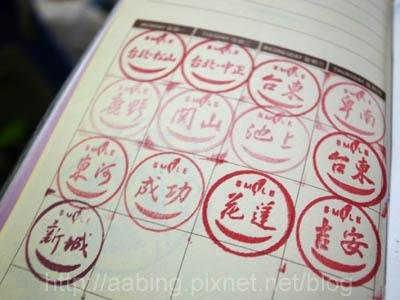 MONDAY
TUESDAY
WEDNESDAY
THURSDAY
SMILE
台北·松山
SMILE
台北·中正
SMILE
台東
SMILE
卑南
SMILE
鹿野
SMILE
関山
SMILE
池上
SMILE
台東
SMILE
東河
SMILE
成功
SMILE
花蓮
SMILE
吉安
SMILE
新城
http://aabing.pixnet.net/blog